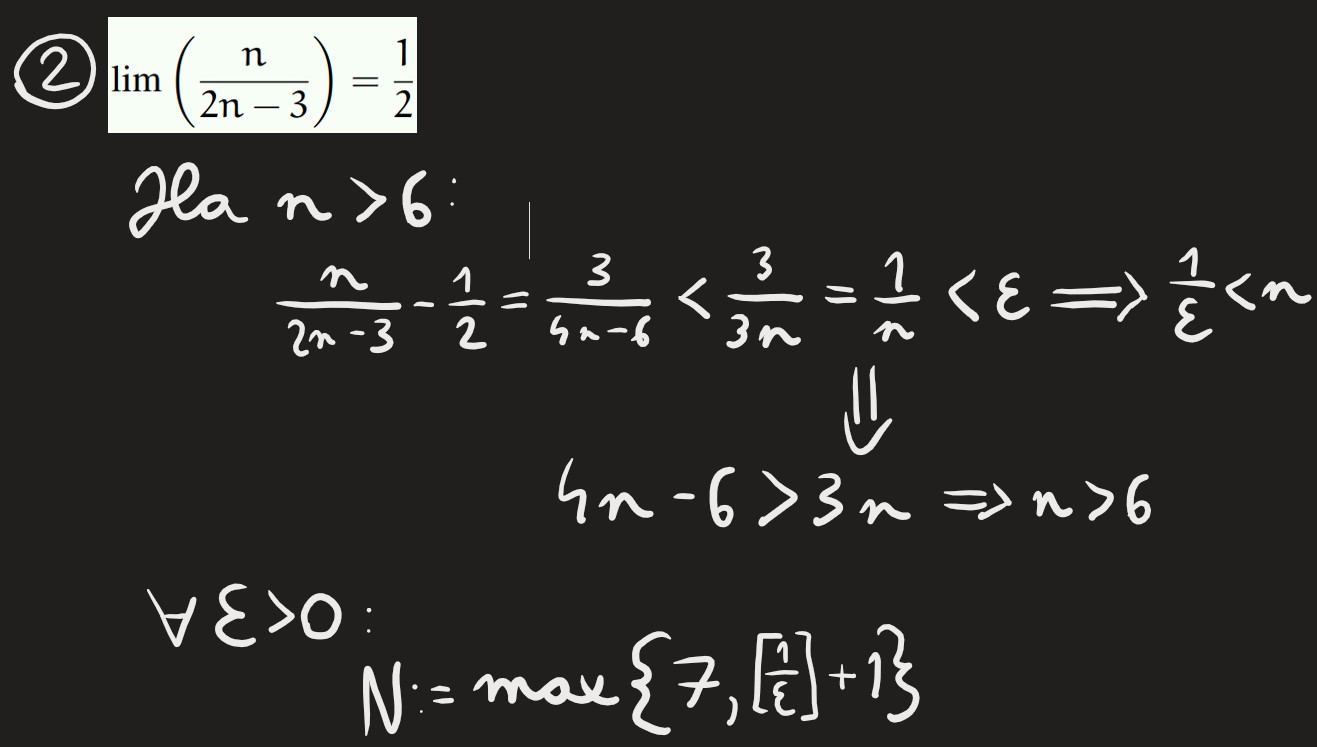 ② lim (n / (2n − 3)) = 1/2
Ha n > 6:
n/(2n-3) - 1/2 = 3/(4n-6) < 3/(3n) = 1/n < ε ⟹ 1/ε < n
⇓
4n - 6 > 3n ⇒ n > 6
∀ ε > 0:
N := max{7, [1/ε] + 1}